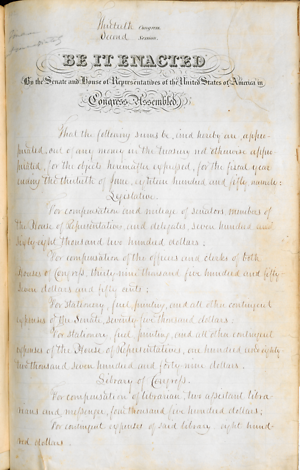 Thirtieth Congress
Second Session
BE IT ENACTED
By the Senate and House of Representatives of the United States of America in
Congress Assembled,
That the following sums be, and hereby are, appro-
priated, out of any money in the treasury not otherwise appro-
priated, for the objects hereinafter expressed, for the fiscal year
ending the thirtieth of June, eighteen hundred and fifty, namely:
Legislative.
For compensation and mileage of senators members of
the House of Representatives and delegates, seven hundred and
sixty-eight thousand two hundred dollars;
For compensation of the officers and clerks of both
houses of Congress, thirty-nine thousand five hundred and fifty-
seven dollars and fifty cents;
For stationery, fuel, printing, and all other contingent
expenses of the Senate, seventy five thousand dollars;
For stationery, fuel, printing, and all other contingent
expenses of the House of Representatives, one hundred and eighty-
two thousand seven hundred and forty-nine dollars.
Library of Congress.
For compensation of librarian, two assistant libra
rians and messenger, four thousand five hundred dollars;
For contingent expenses of said library, eight hund
red dollars